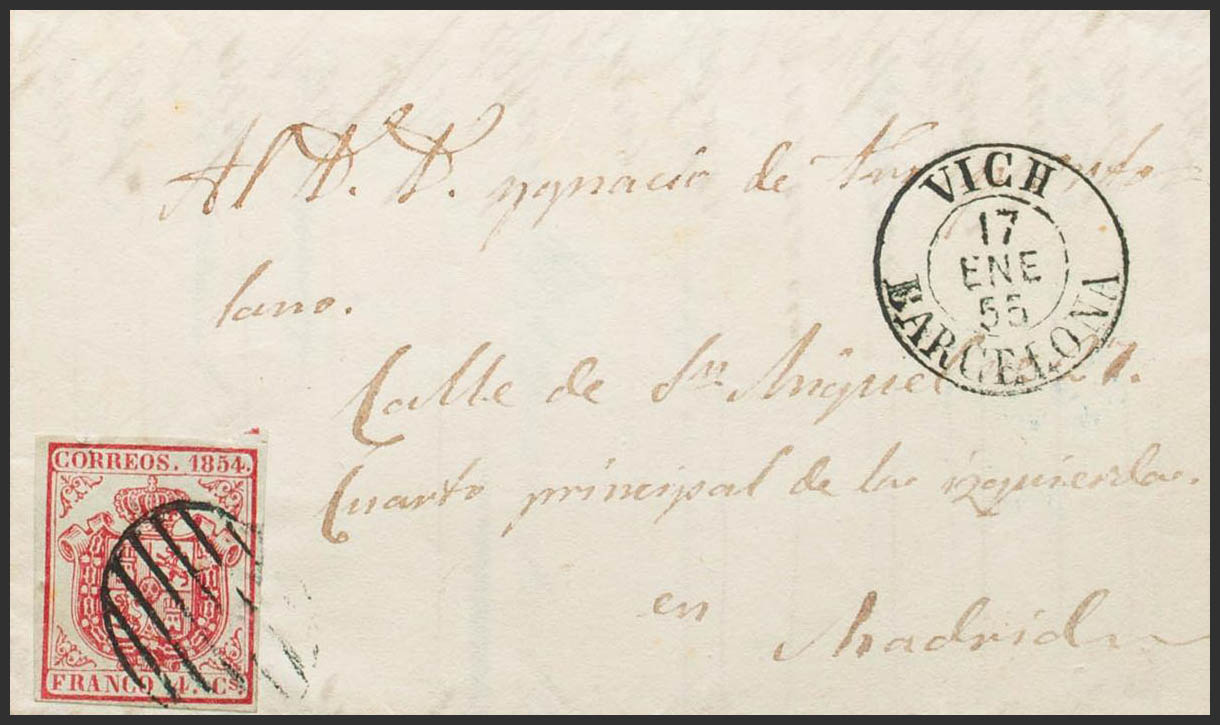 Al D. D. Ygnacio de
lano.
Calle de Sn Miguel 7.
Cuarto principal de la izquierda.
en Madrid
VICH
17
ENE
55
BARCELONA
CORREOS. 1854.
FRANCO 4. Cs.